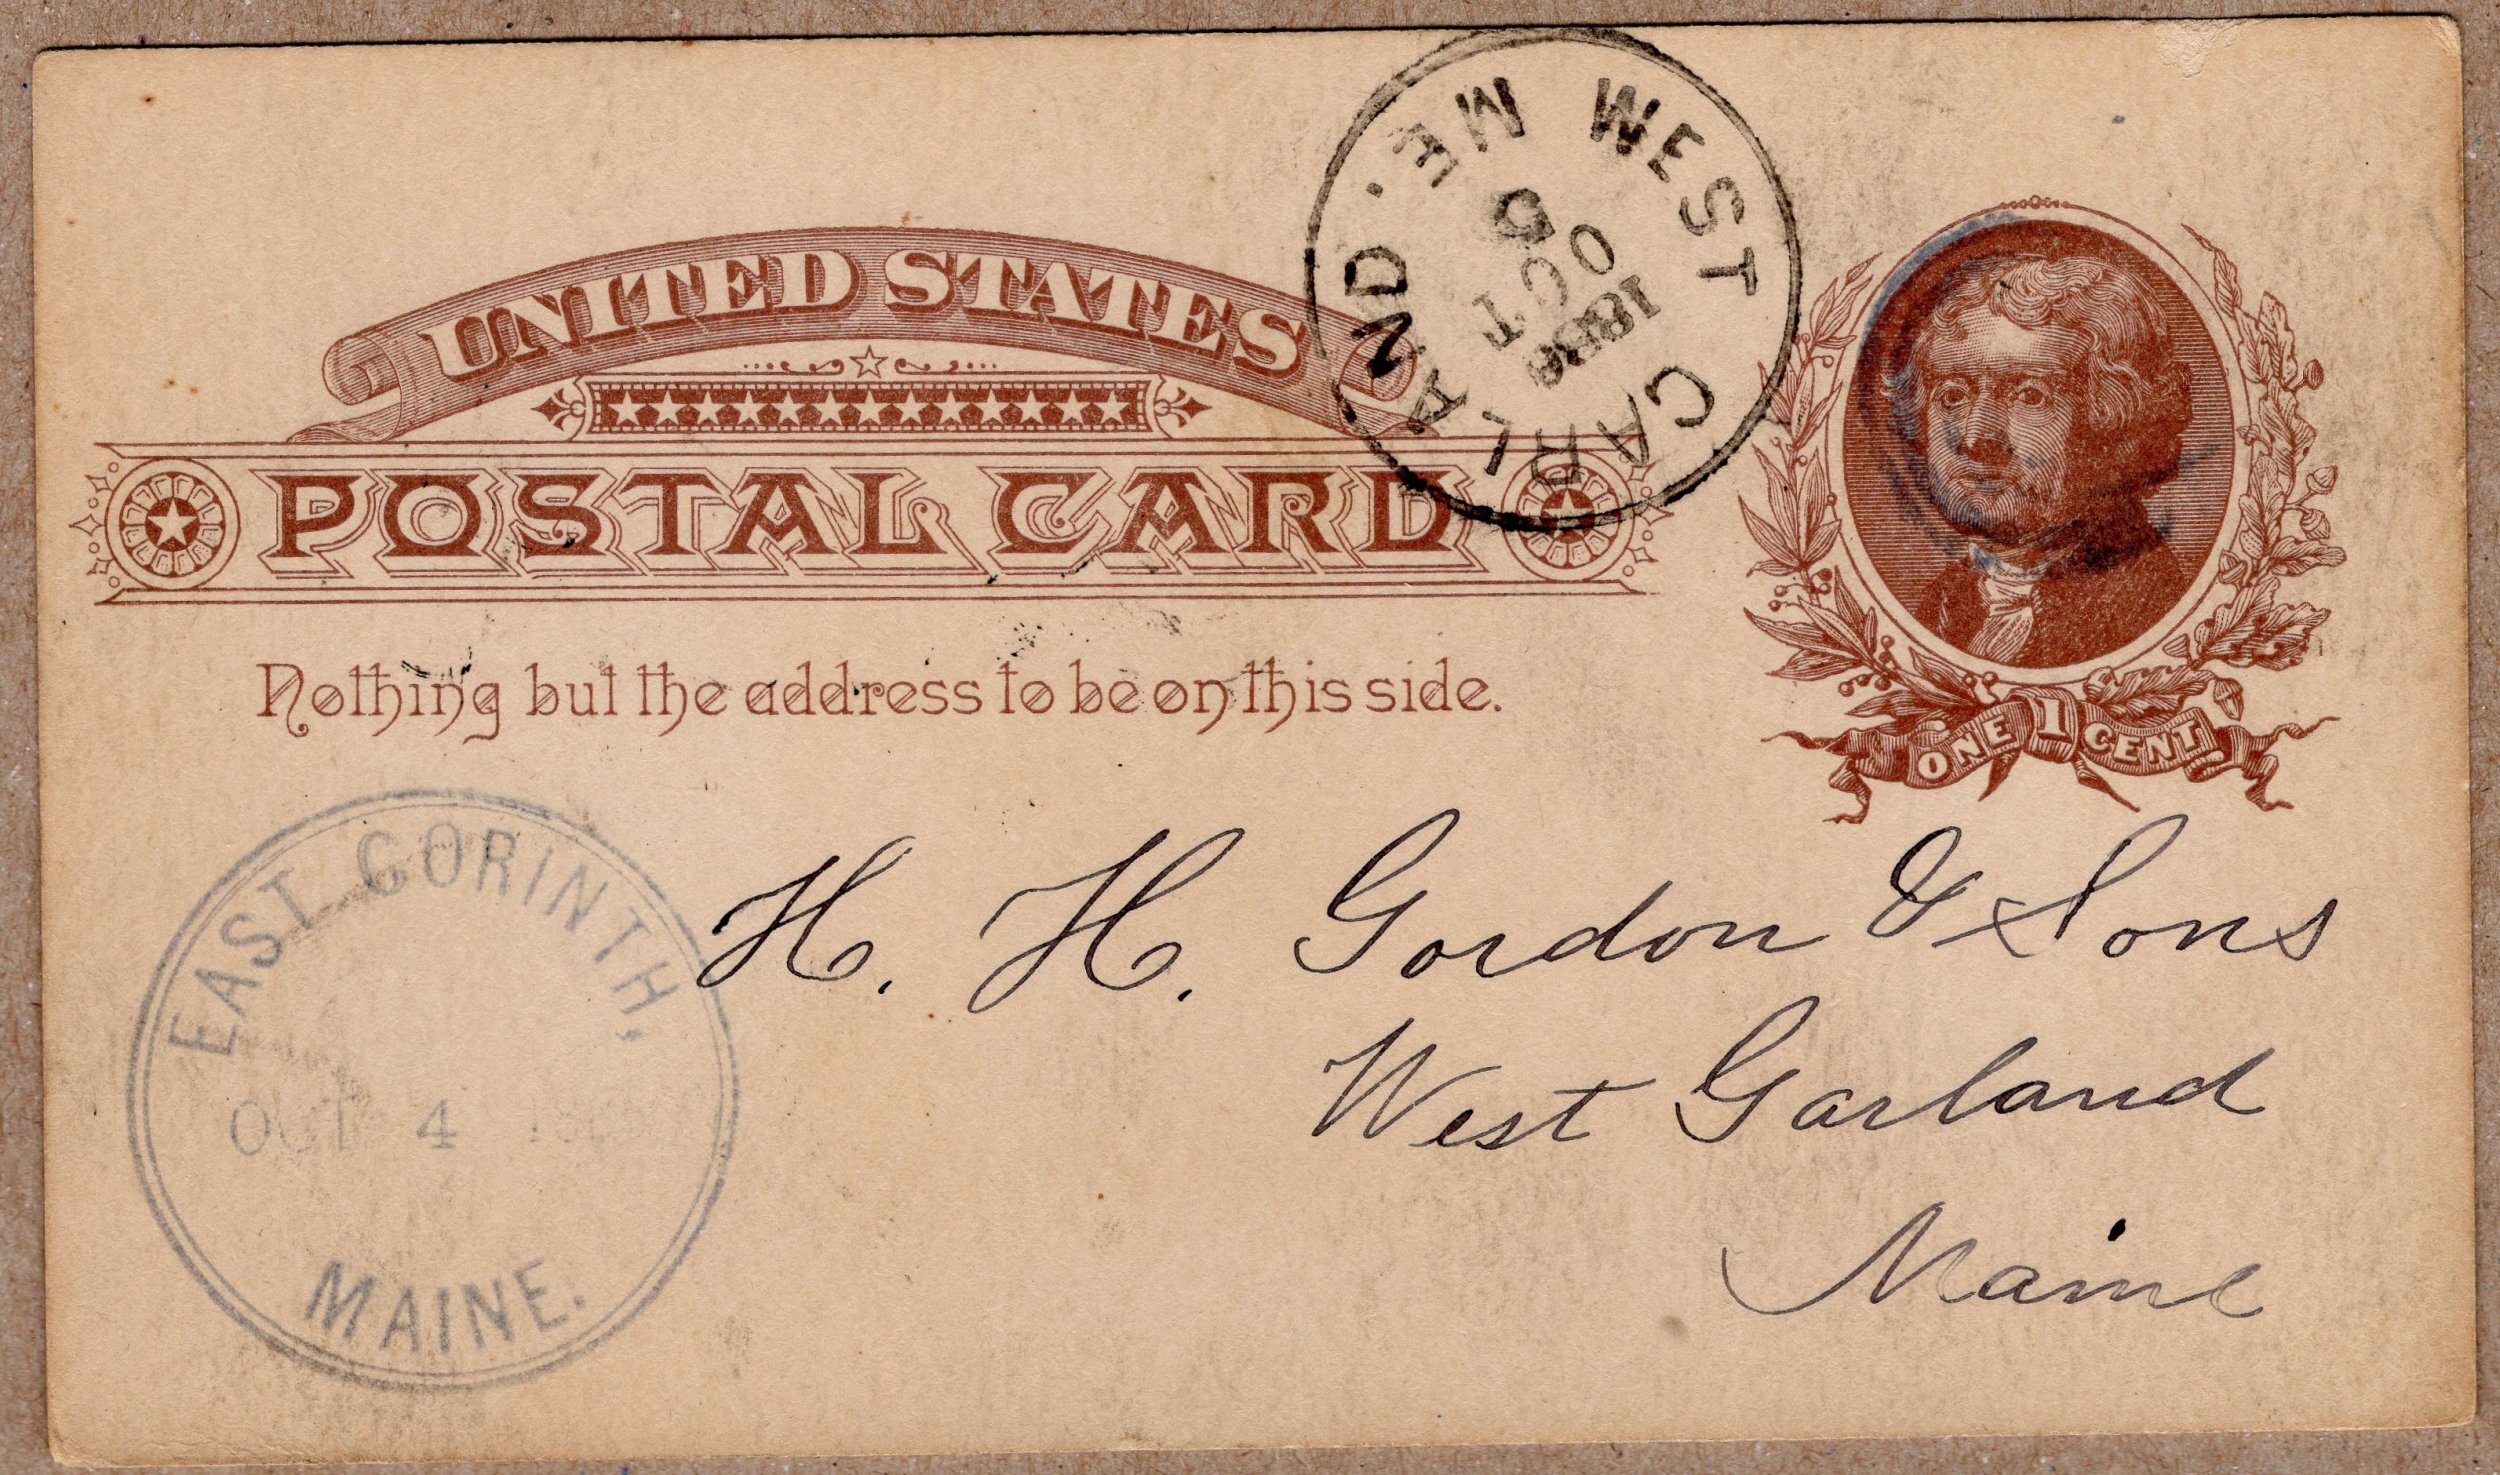 UNITED STATES
POSTAL CARD
Nothing but the address to be on this side.
WEST GARLAND. ME.
OCT
ONE 1 CENT
EAST CORINTH,
OCT 4
MAINE.
H. H. Gordon & Sons
West Garland
Maine